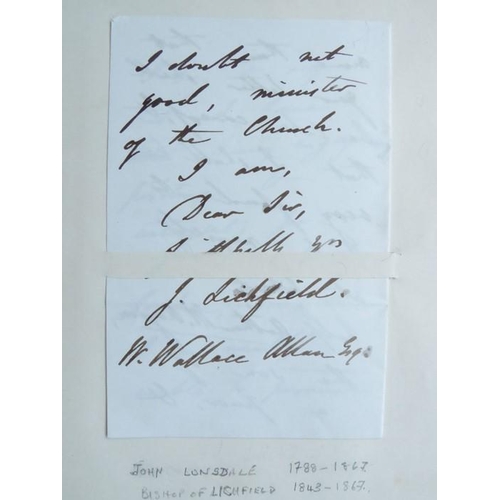 I doubt not
good, minister
of the Church.
I am,
Dear Sir,
Faithfully yrs
J. Lichfield.
W. Wallace Allan Esq.
JOHN LONSDALE 1788-1867
BISHOP OF LICHFIELD 1843-1867.